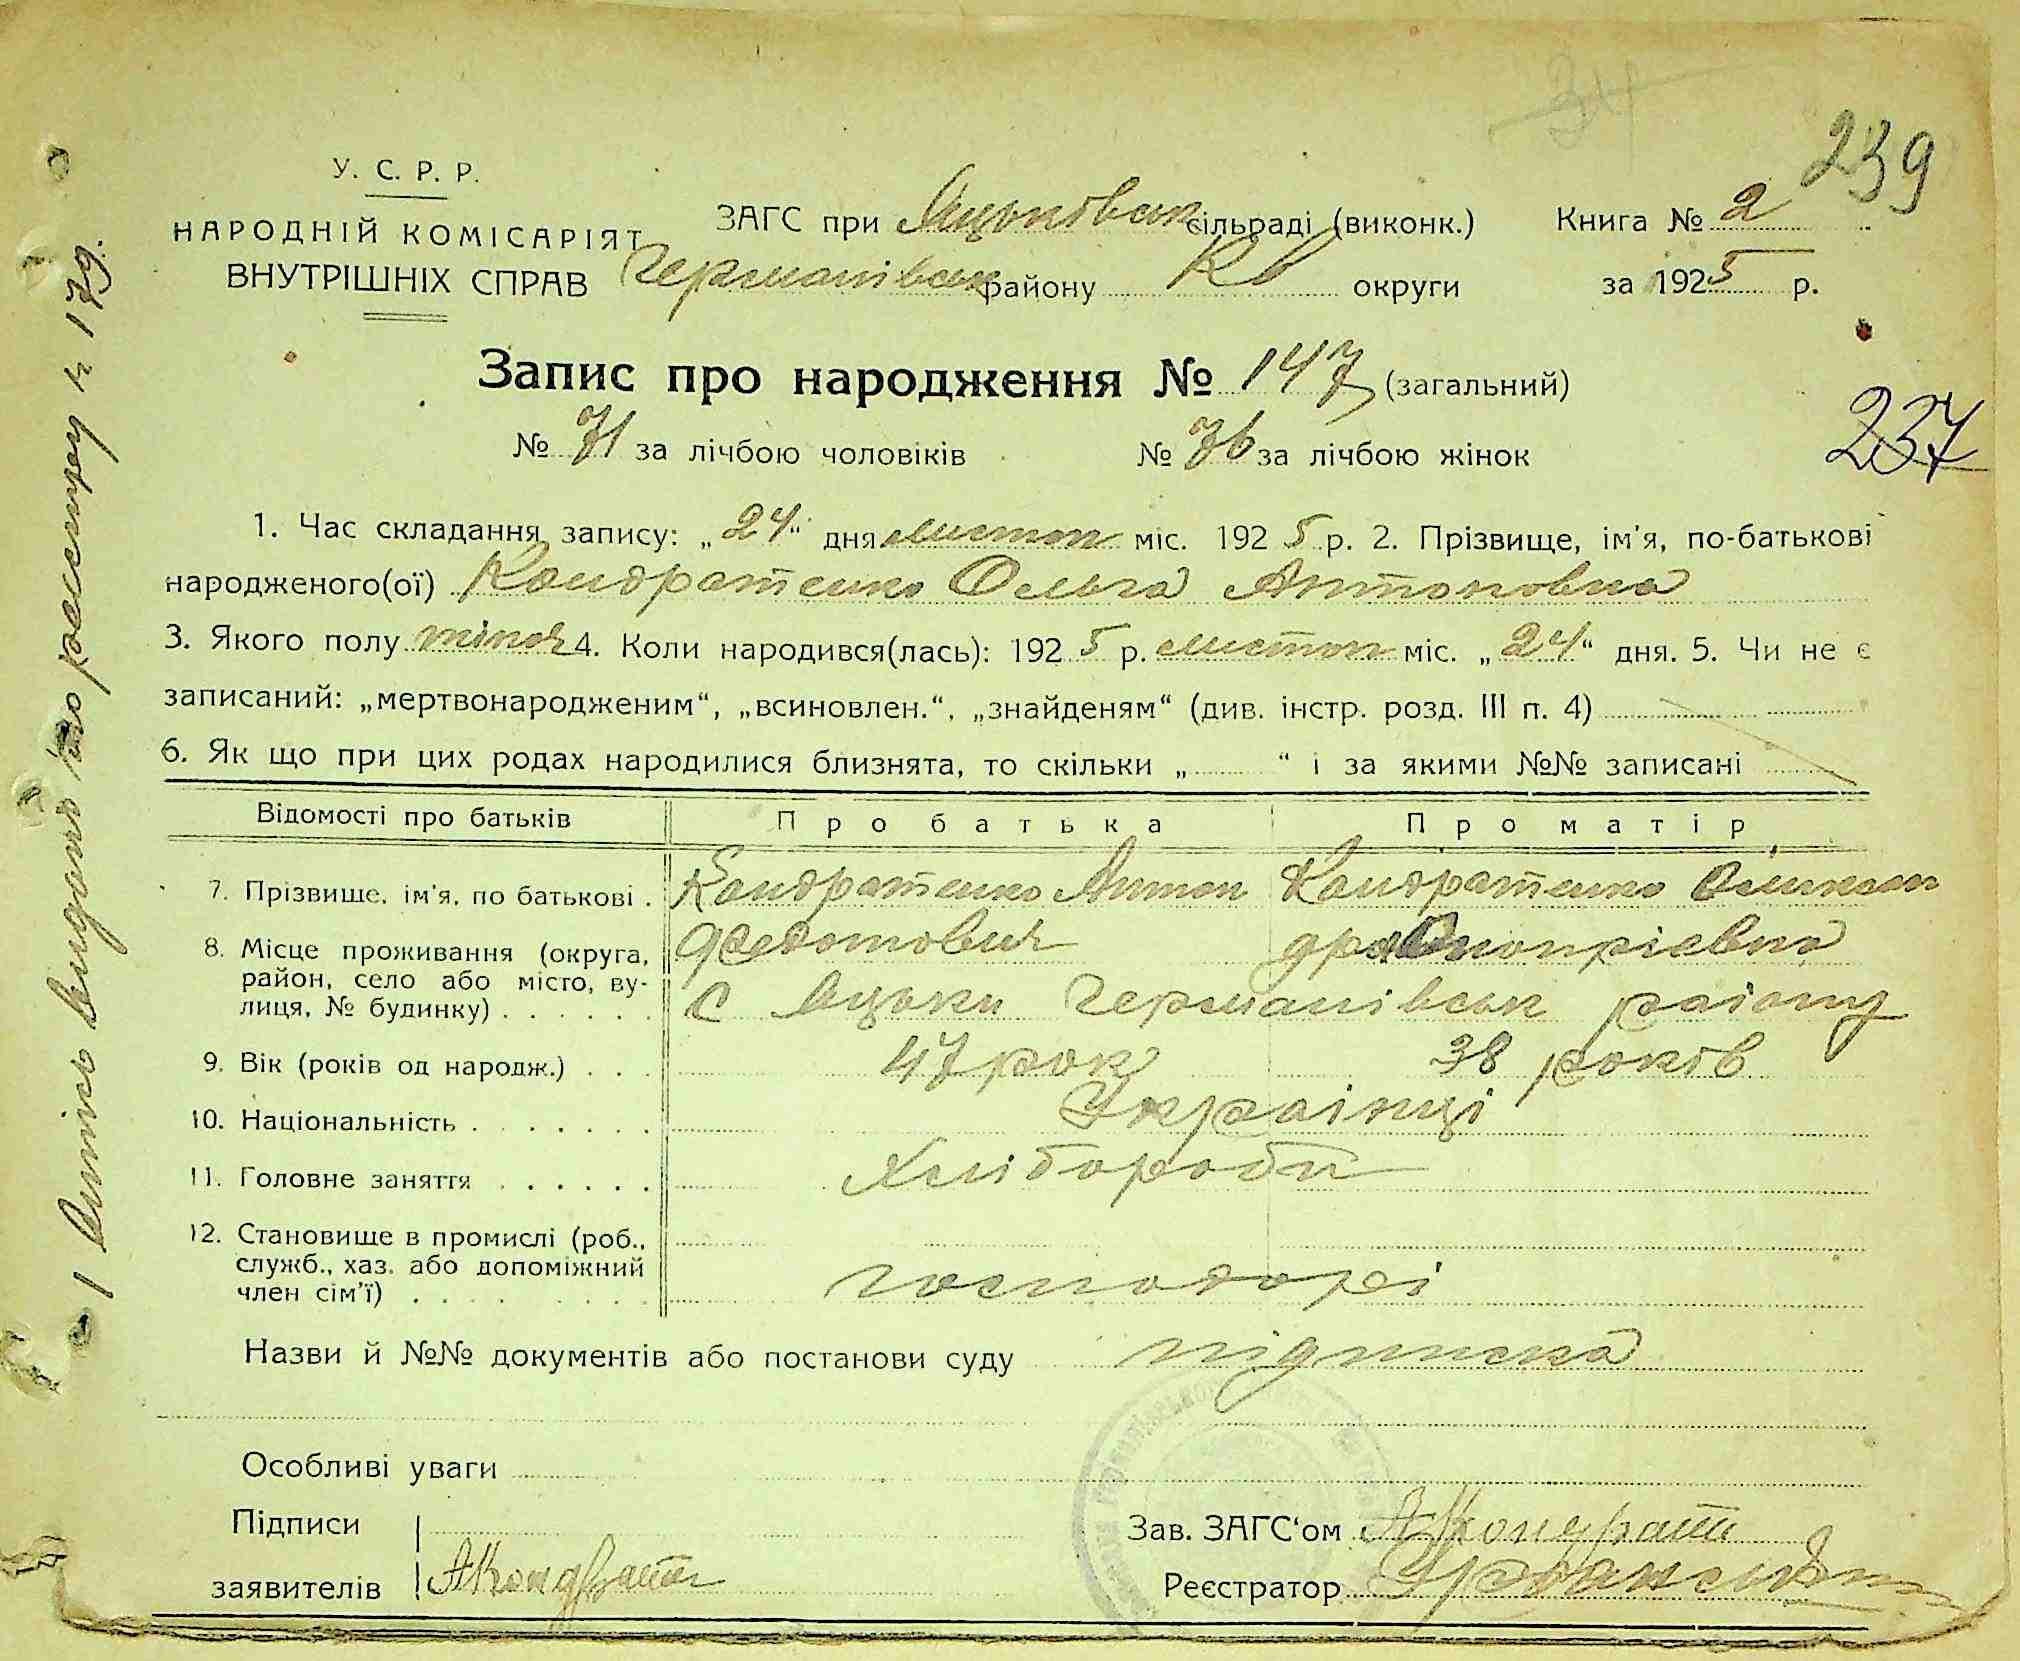 239
У. С. Р. Р.
НАРОДНІЙ КОМІСАРІЯТ
ВНУТРІШНІХ СПРАВ
ЗАГС при Яцьківськ сільраді (виконк.) Книга № 2
Германівськ району Кв округи за 1925 р.
Запис про народження № 147 (загальний)
№ 71 за лічбою чоловіків № 76 за лічбою жінок
237
1. Час складання запису: „24“ дня листоп міс. 1925 р. 2. Прізвище, ім'я, по-батькові
народженого(ої) Кондратенко Ольга Антоновна
3. Якого полу жіноч 4. Коли народився(лась): 1925 р. листоп міс. „24“ дня. 5. Чи не є
записаний: „мертвонародженим“, „всиновлен.“, „знайденям“ (див. інстр. розд. III п. 4)
6. Як що при цих родах народилися близнята, то скільки „ “ і за якими №№ записані
Відомості про батьків Про батька Про матір
7. Прізвище, ім'я, по батькові . Кондратенко Антон Кондратенко
Федотович
8. Місце проживання (округа,
район, село або місто, ву-
лиця, № будинку) . . . . . . с Яцьки Германівськ району
9. Вік (років од народж.) . . . 47 рок 38 років
10. Національність . . . . . . . Українці
11. Головне заняття . . . . . . Хлібороби
12. Становище в промислі (роб.,
служб., хаз. або допоміжний
член сім'ї) . . . . . . . . . господарі
Назви й №№ документів або постанови суду підписка
Особливі уваги
Підписи
заявителів АКондрат
Зав. ЗАГС'ом АКондрат
Реєстратор